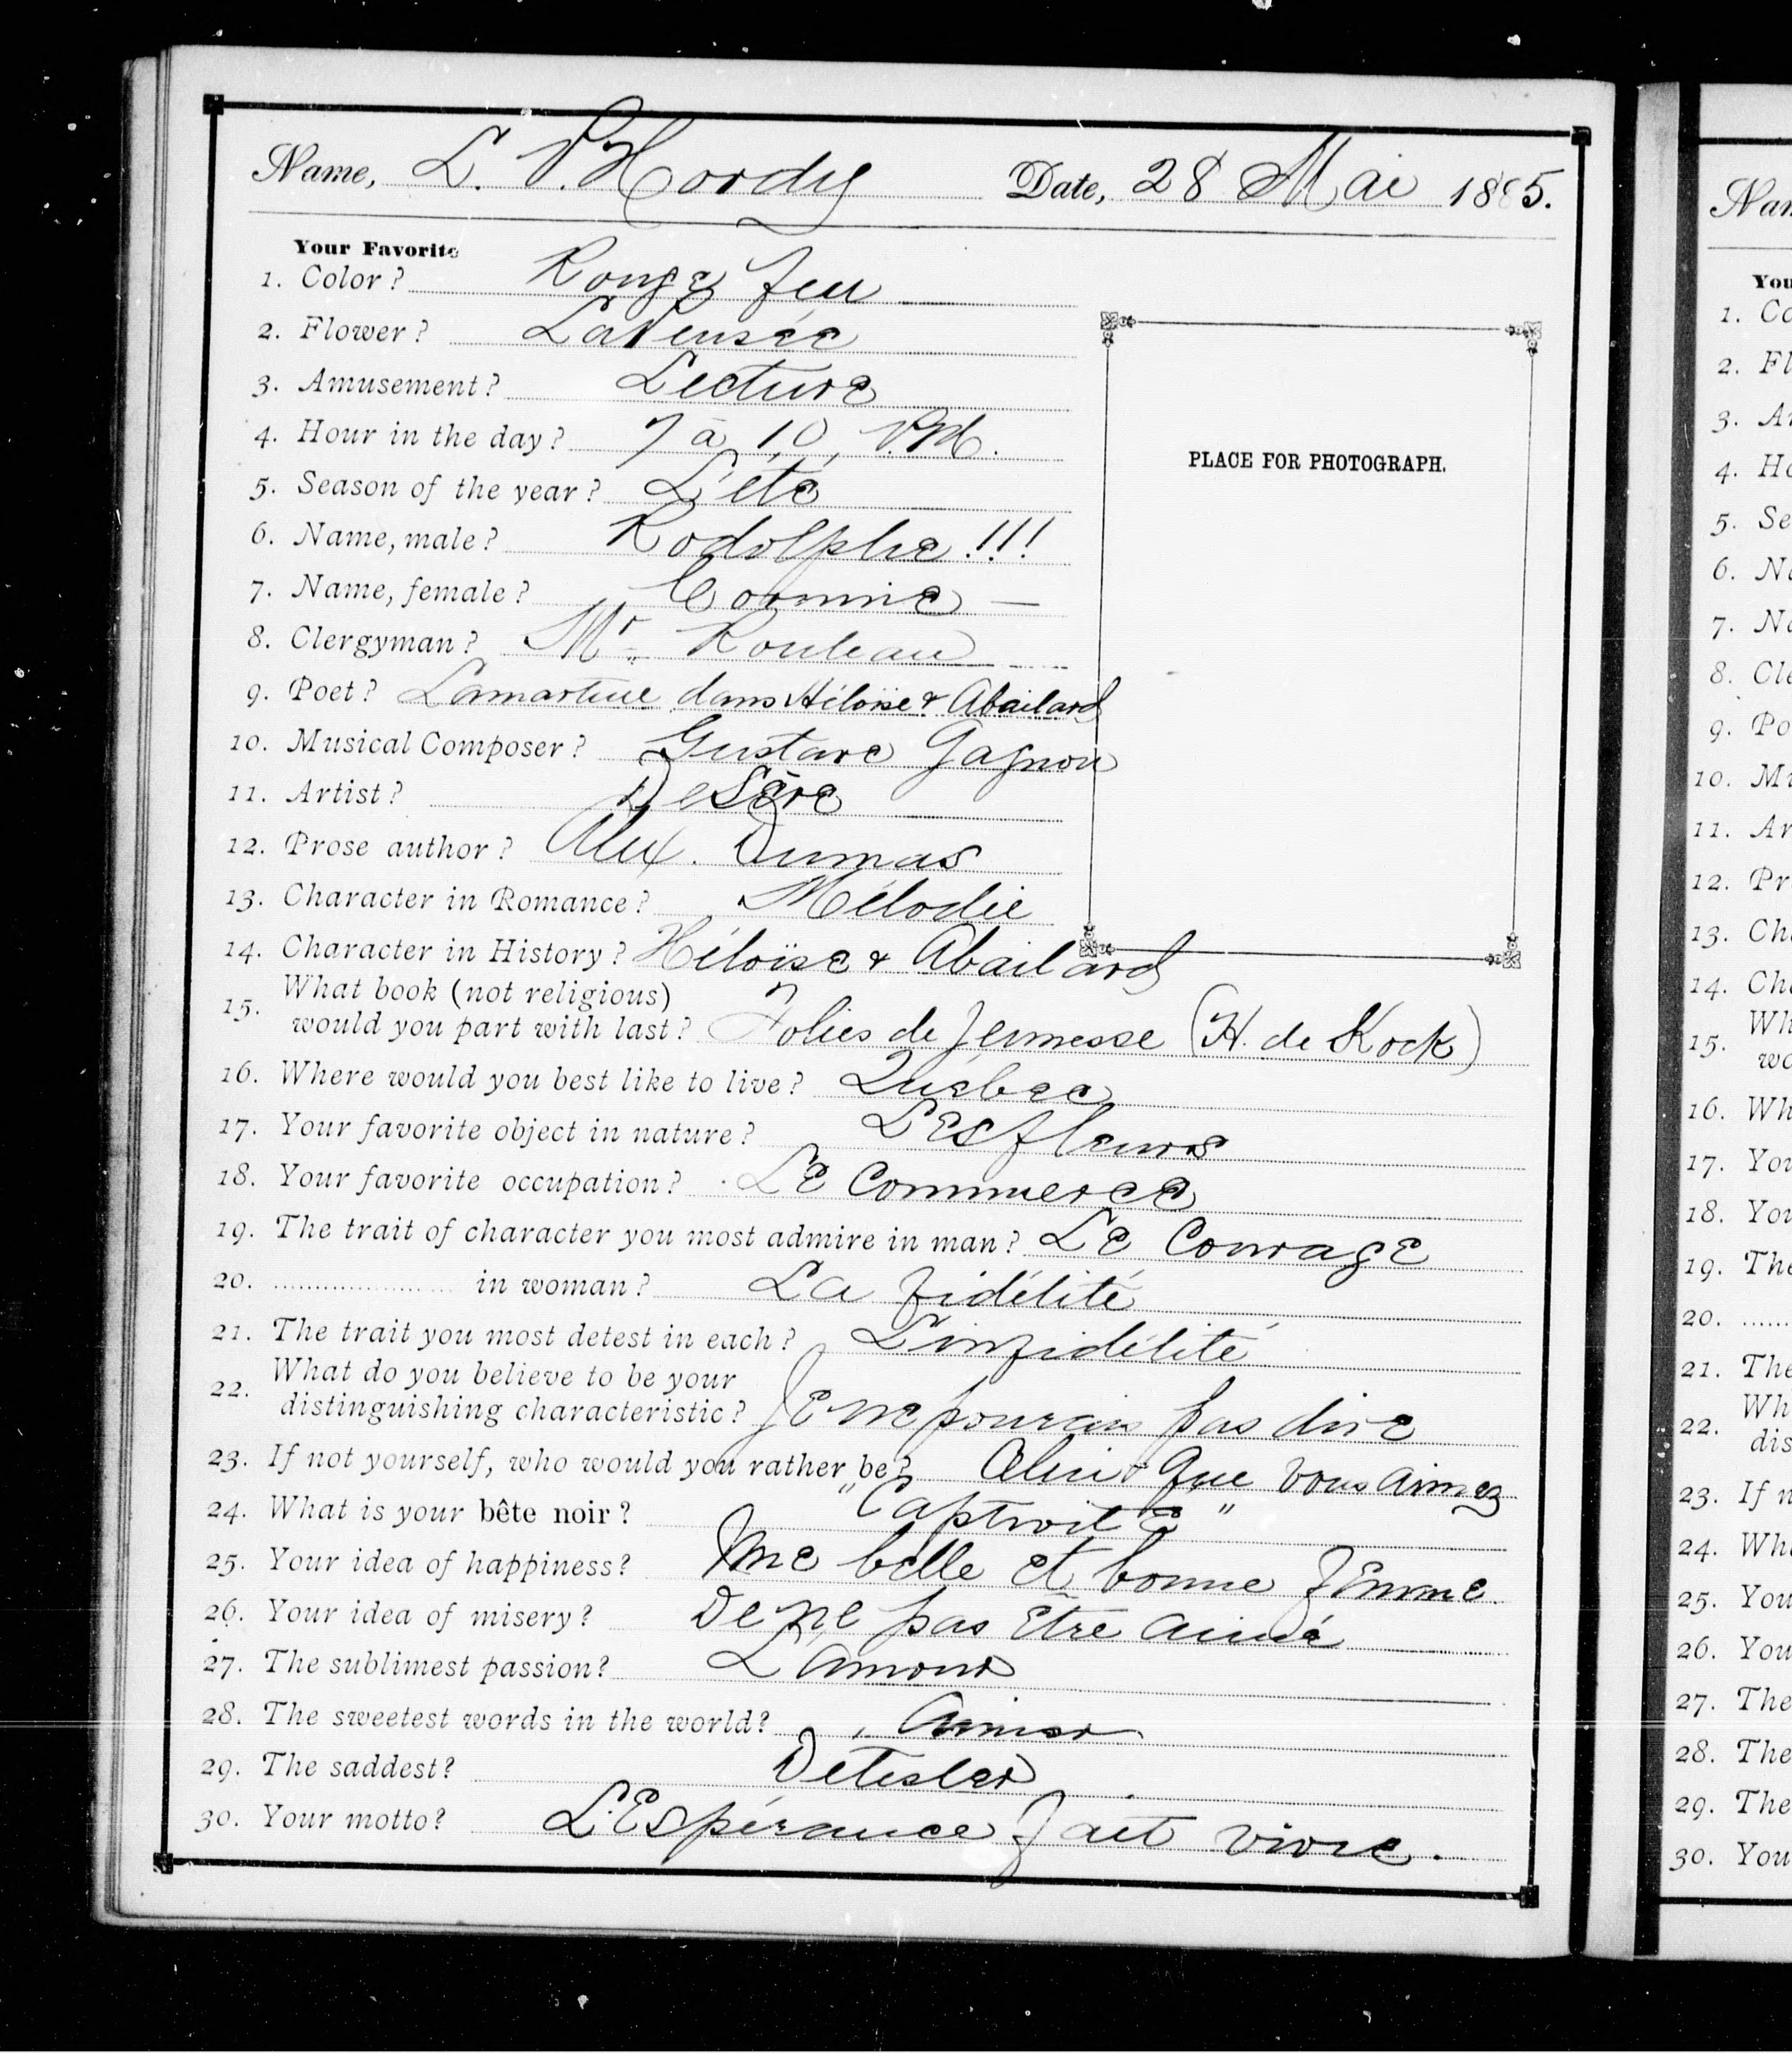 Name, L. P. Hardy Date, 28 Mai 1885.
Your Favorite
1. Color? Rouge feu
2. Flower? La Pensée
3. Amusement? Lecture
4. Hour in the day? 7 à 10, P.M.
5. Season of the year? L'été
6. Name, male? Rodolphe!!!
7. Name, female? Corinne —
8. Clergyman? Mr Rouleau
9. Poet? Lamartine dans Héloïse & Abailard
10. Musical Composer? Gustave Gagnon
11. Artist?
12. Prose author? Alex. Dumas
13. Character in Romance? Mélodie
14. Character in History? Héloïse & Abailard
PLACE FOR PHOTOGRAPH.
15. What book (not religious)
would you part with last? Folies de Jeunesse (H. de Kock)
16. Where would you best like to live? Québec
17. Your favorite object in nature? Les fleurs
18. Your favorite occupation? Le Commerce
19. The trait of character you most admire in man? Le Courage
20. in woman? La fidélité
21. The trait you most detest in each? L'infidélité
22. What do you believe to be your
distinguishing characteristic? Je ne pourais pas dire
23. If not yourself, who would you rather be? Celui que vous aimez
24. What is your bête noir? "Captivité"
25. Your idea of happiness? Une belle et bonne femme.
26. Your idea of misery? De ne pas être aimé
27. The sublimest passion? L'amour
28. The sweetest words in the world? Aimer
29. The saddest? Détester
30. Your motto? L'Espérance fait vivre.
Nam
You
1. Co
2. Fl
3. A
4. Ho
5. Se
6. Na
7. Na
8. Cle
9. Po
10. Mu
11. Ar
12. Pr
13. Ch
14. Cha
15. Wh
wo
16. Wh
17. You
18. You
19. The
20.
21. The
22. Wh
dis
23. If n
24. Wha
25. You
26. You
27. The
28. The
29. The
30. You